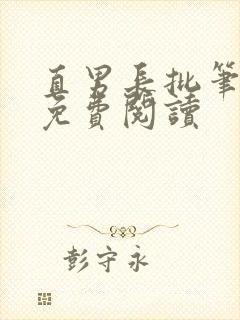 直男長批筆
免費閱讀
彭守永